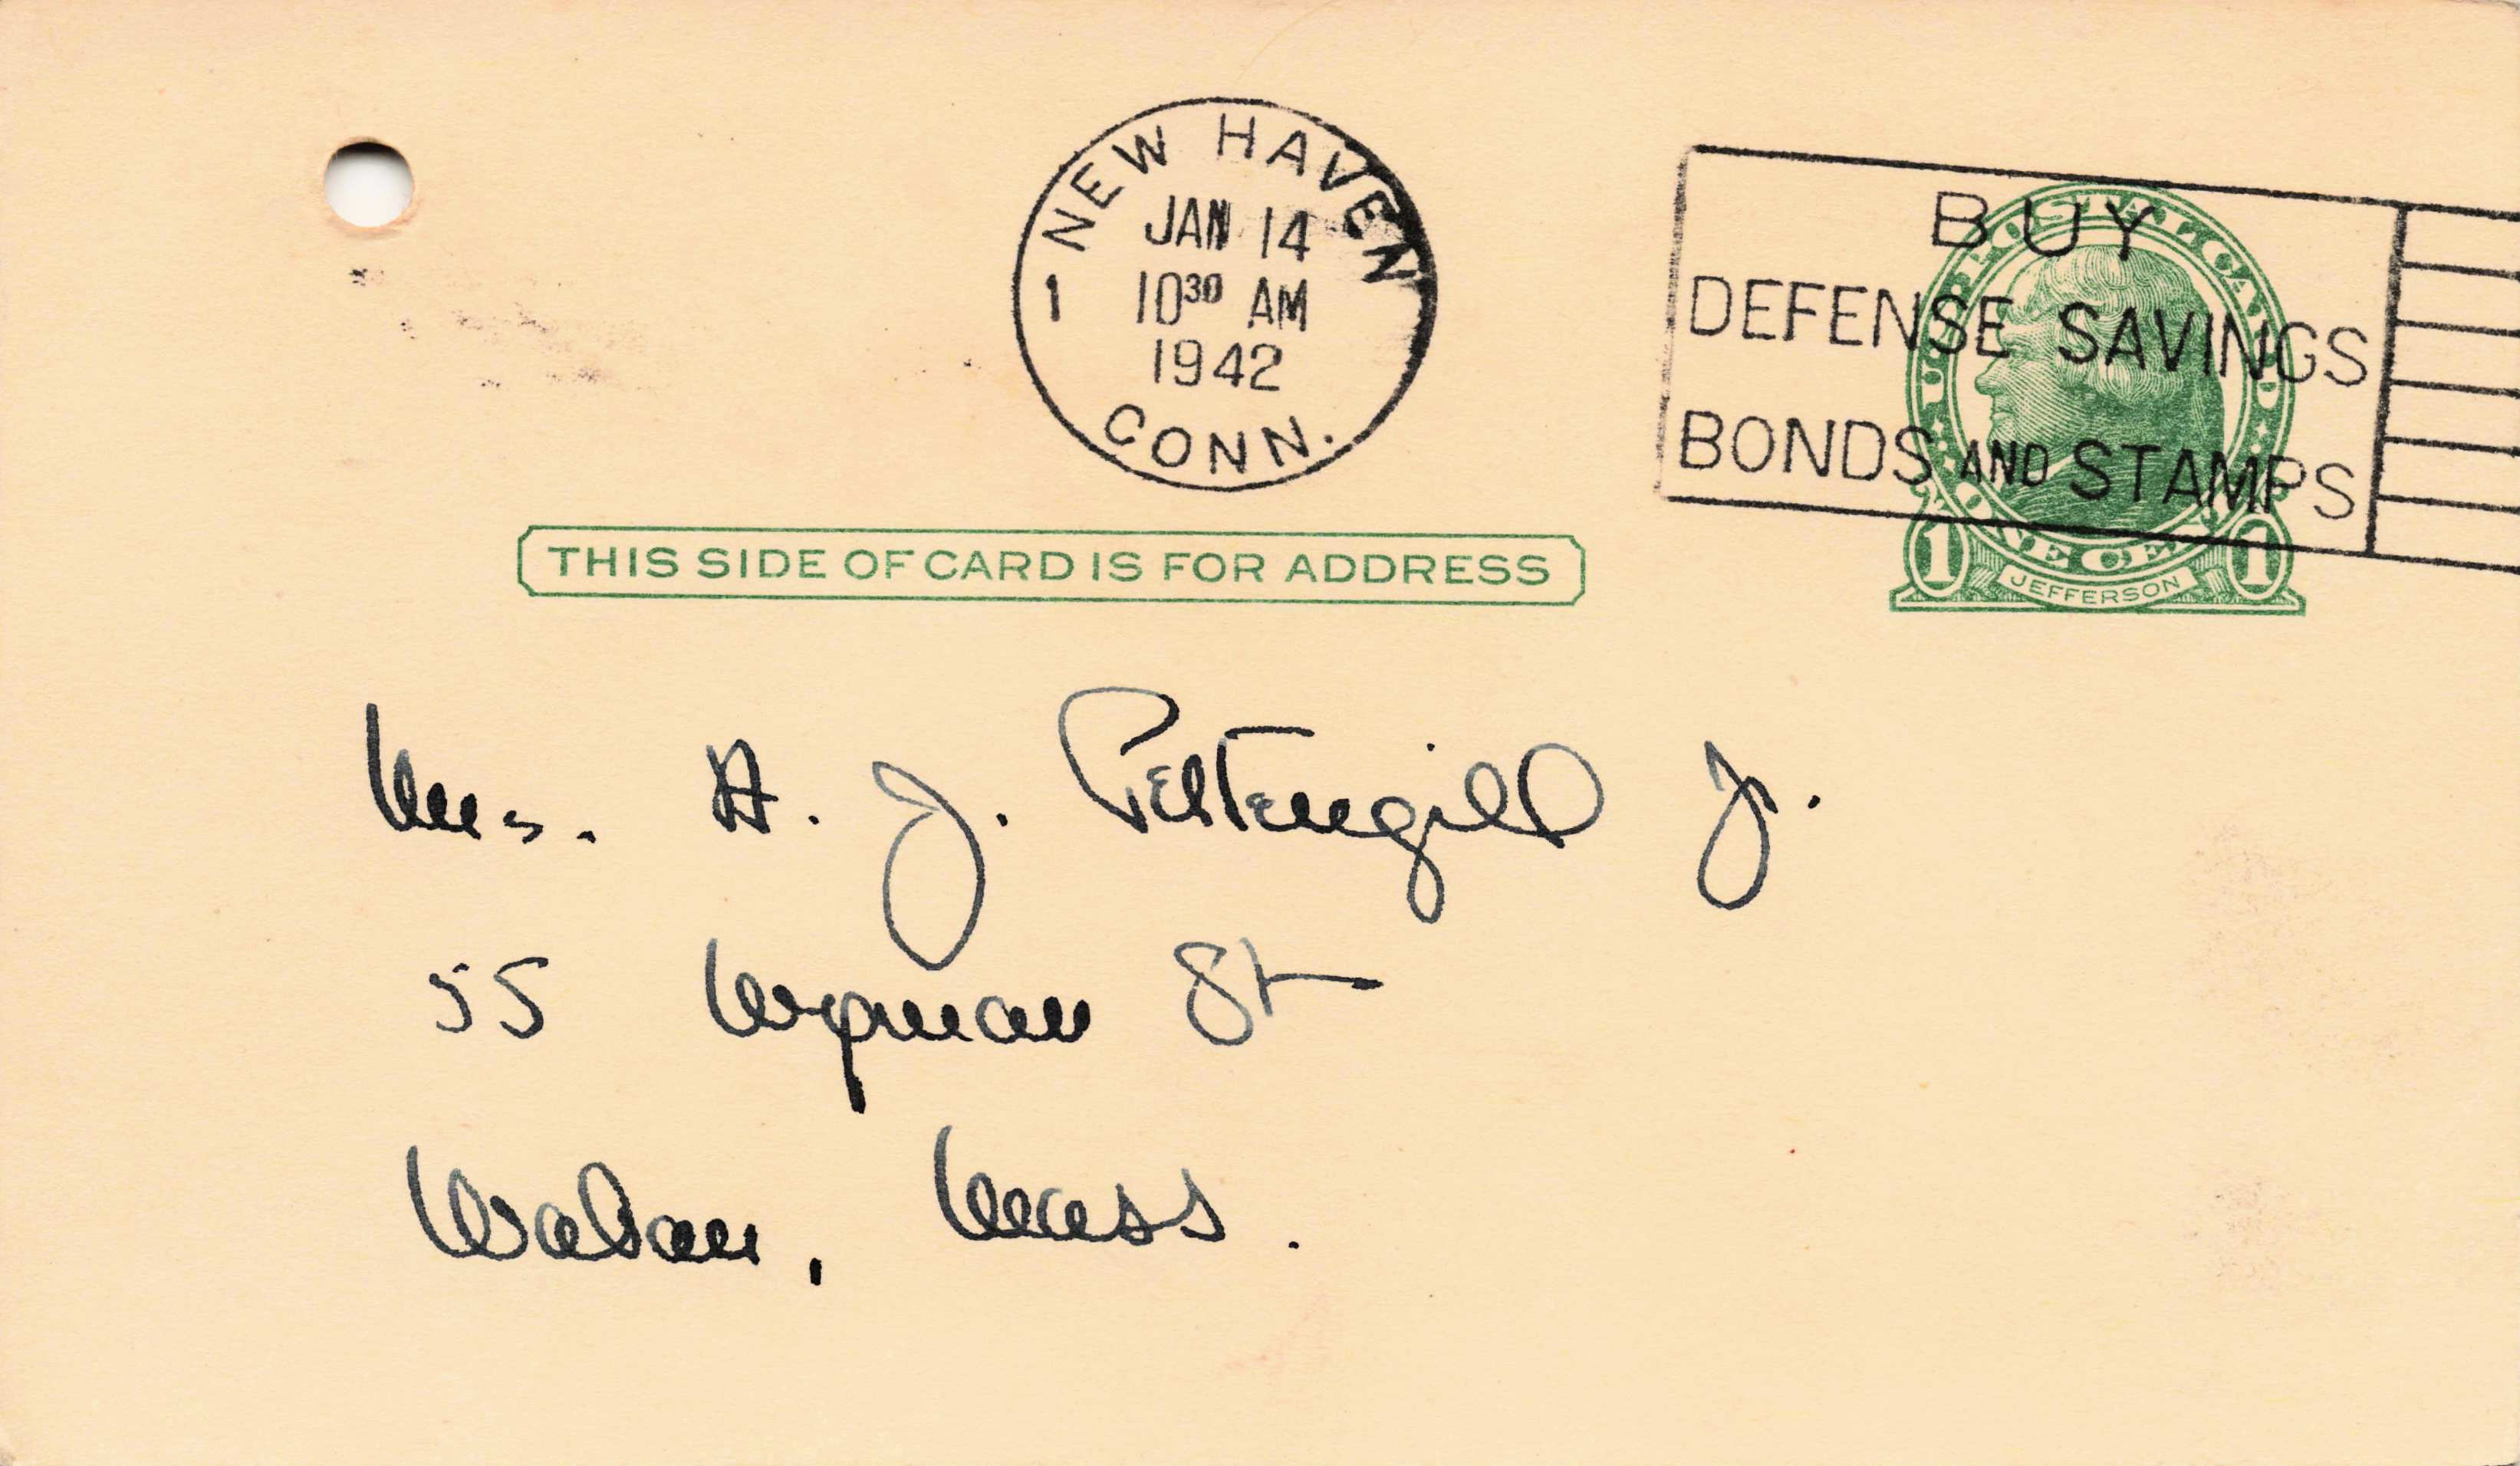 NEW HAVEN
JAN 14
1 10³⁰ AM
1942
CONN.
BUY
DEFENSE SAVINGS
BONDS AND STAMPS
U.S. POSTAL CARD
ONE CENT
1 JEFFERSON 1
THIS SIDE OF CARD IS FOR ADDRESS
Mrs. A. J. Pettengill Jr.
55 Wyman St
Waban, Mass.